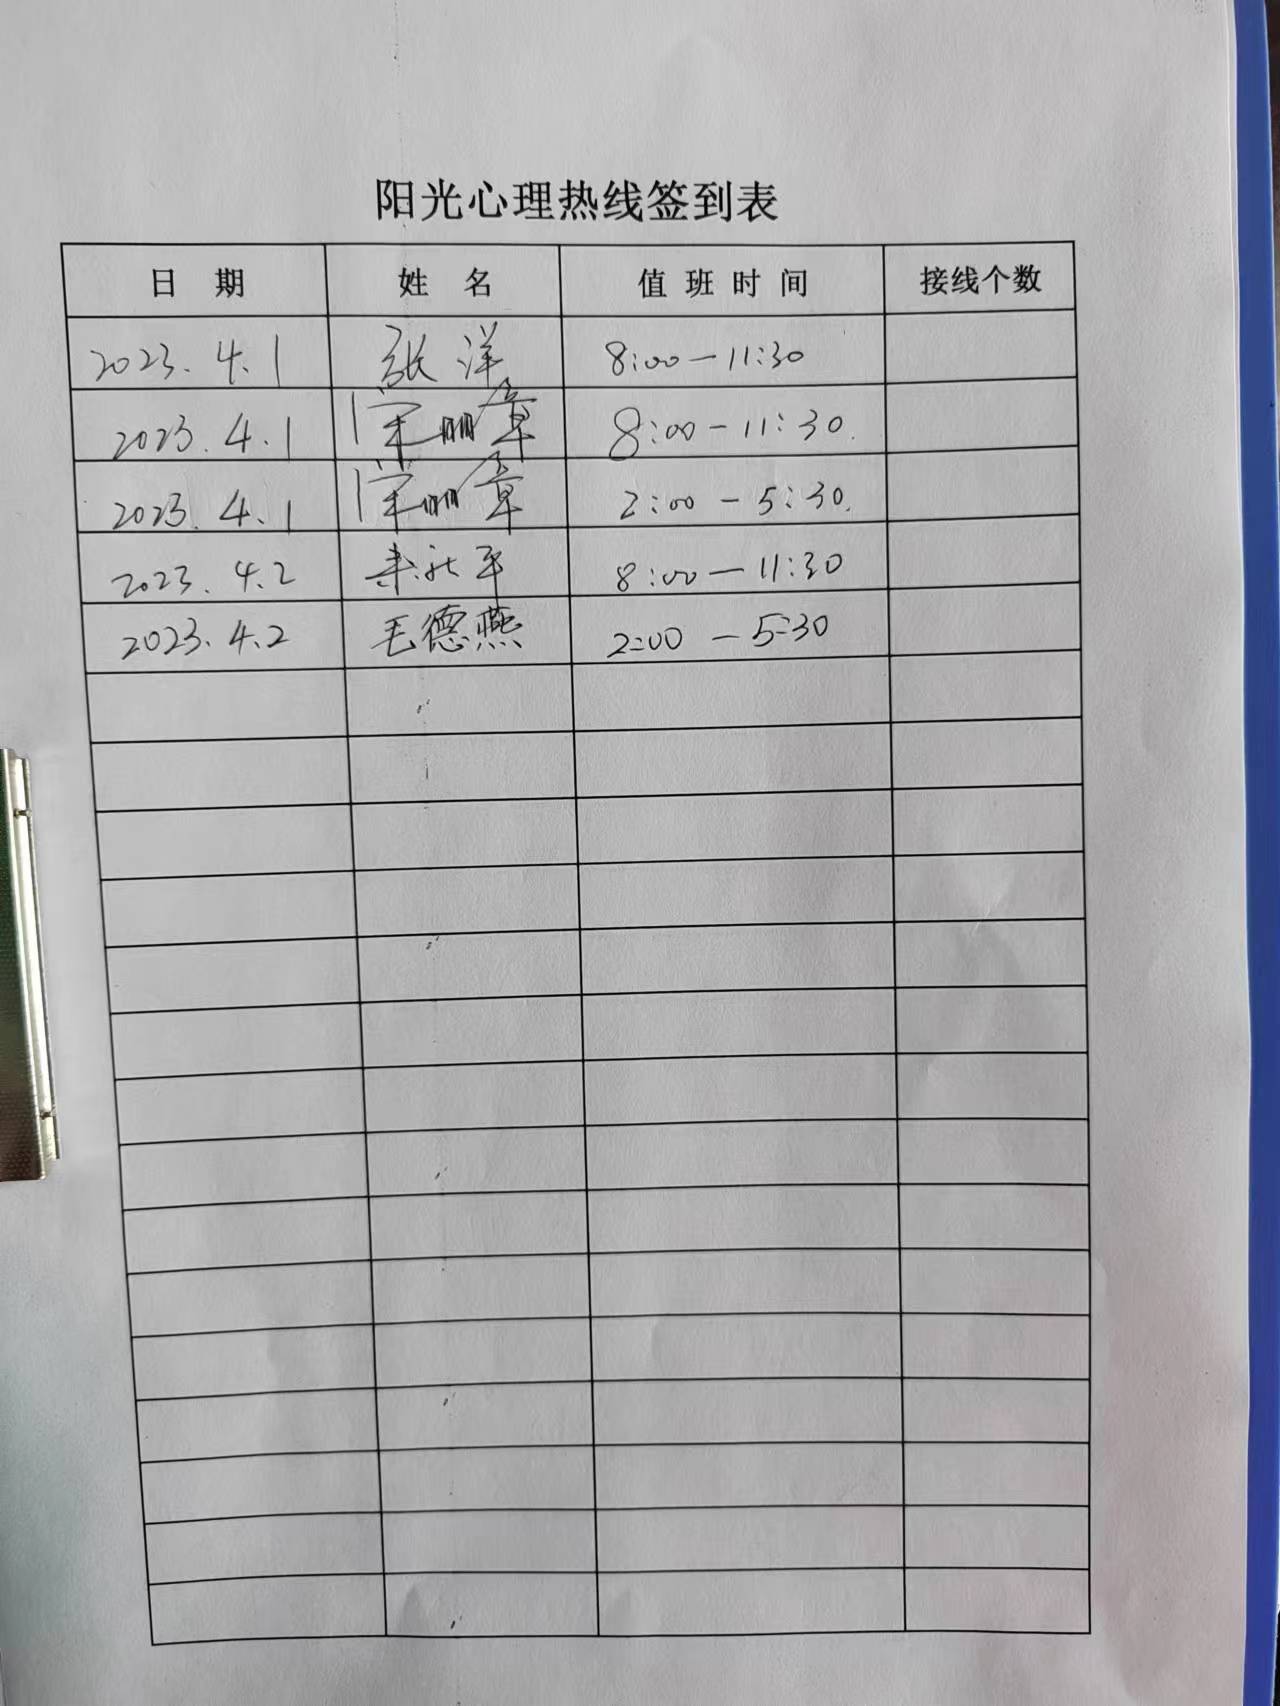 阳光心理热线签到表
日 期 姓 名 值 班 时 间 接线个数
2023.4.1 張洋 8:00-11:30
2023.4.1 8:00-11:30.
2023.4.1 2:00-5:30.
2023.4.2 8:00-11:30
2023.4.2 毛德燕 2:00-5:30